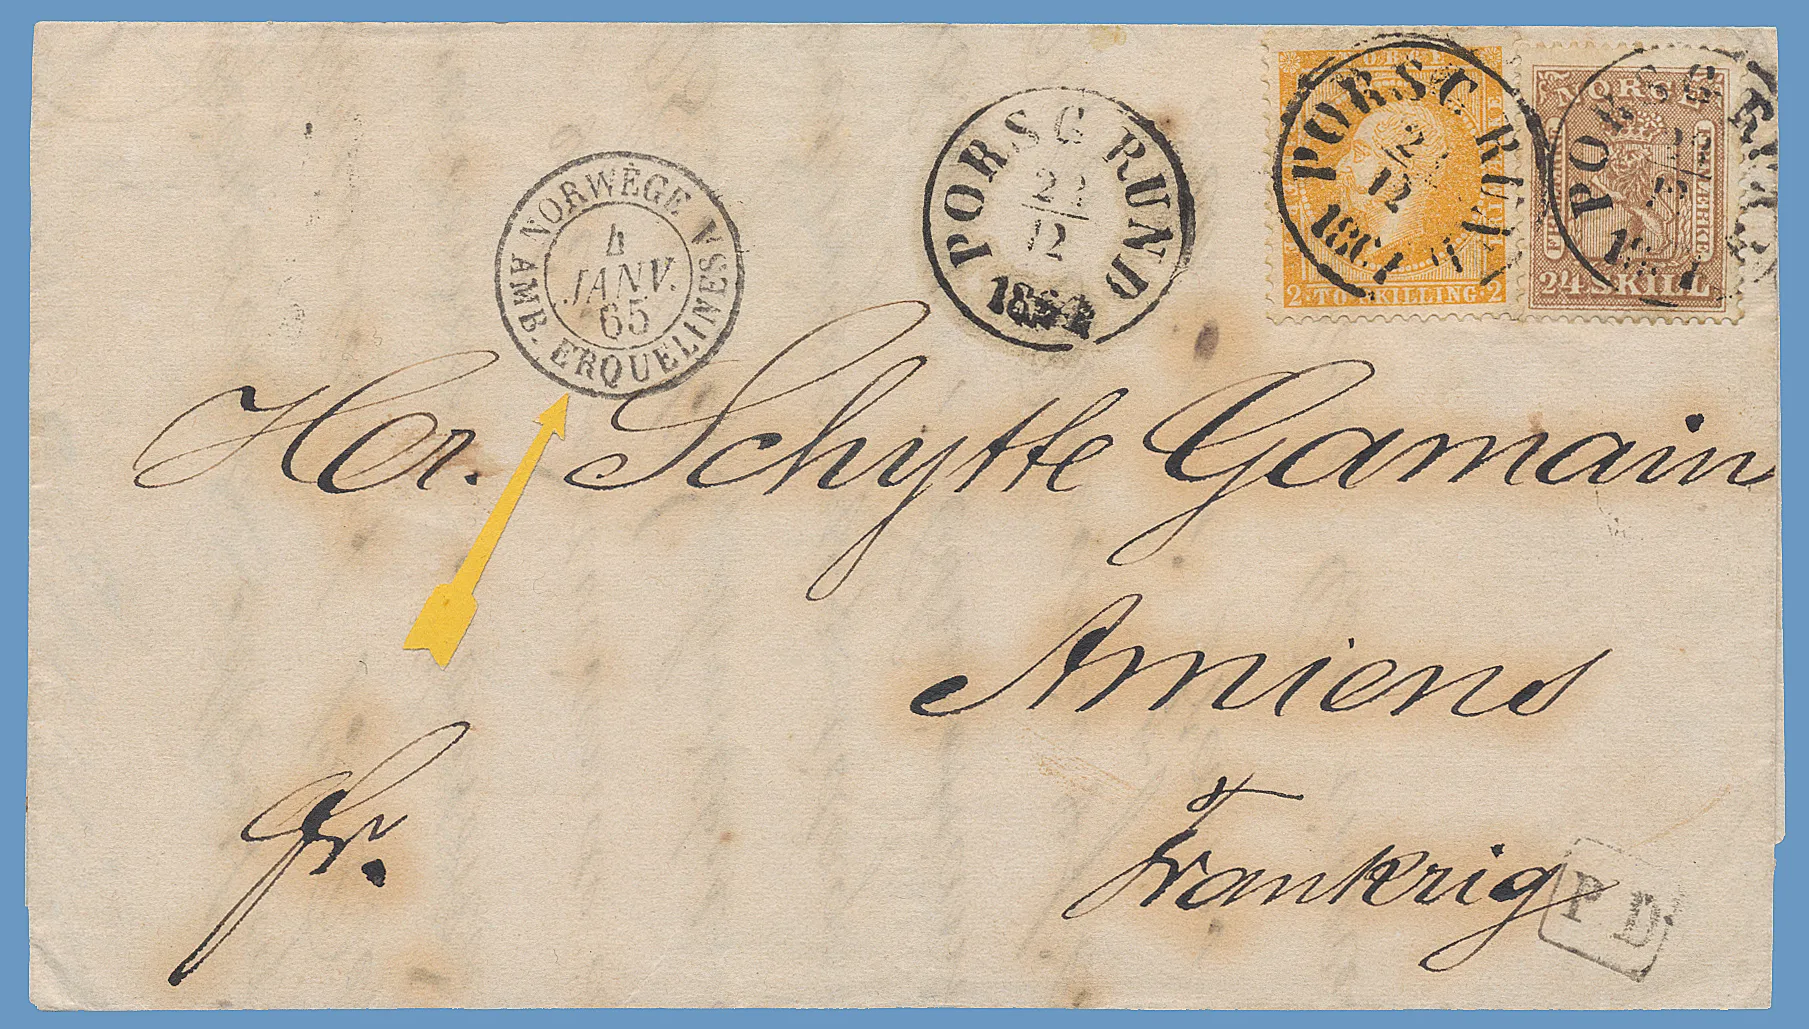 NORWÈGE V
4
JANV.
65
AMB. ERQUELINES
PORSGRUND
22
12
1864
PORSGRUND
12
186
2·TO SKILLING·2
PORSGRUND
NORGE
FRIMÆRKE
24 SKILL
Hr. Schytte Gamain
Amiens
Frankrig
fr.
P D.